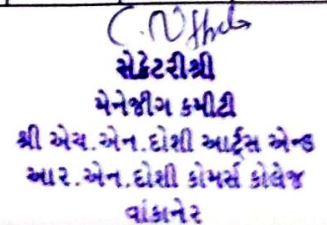 સેક્રેટરીશ્રી
મેનેજીગ કમીટી
શ્રી એચ.એન.દોશી આર્ટ્સ એન્ડ
આર.એન.દોશી કોમર્સ કોલેજ
વાંકાનેર